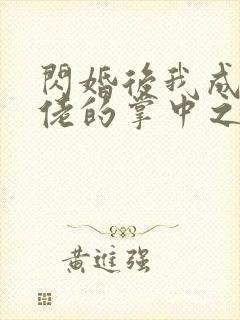 閃婚後我成
佬的掌中之
黃進强